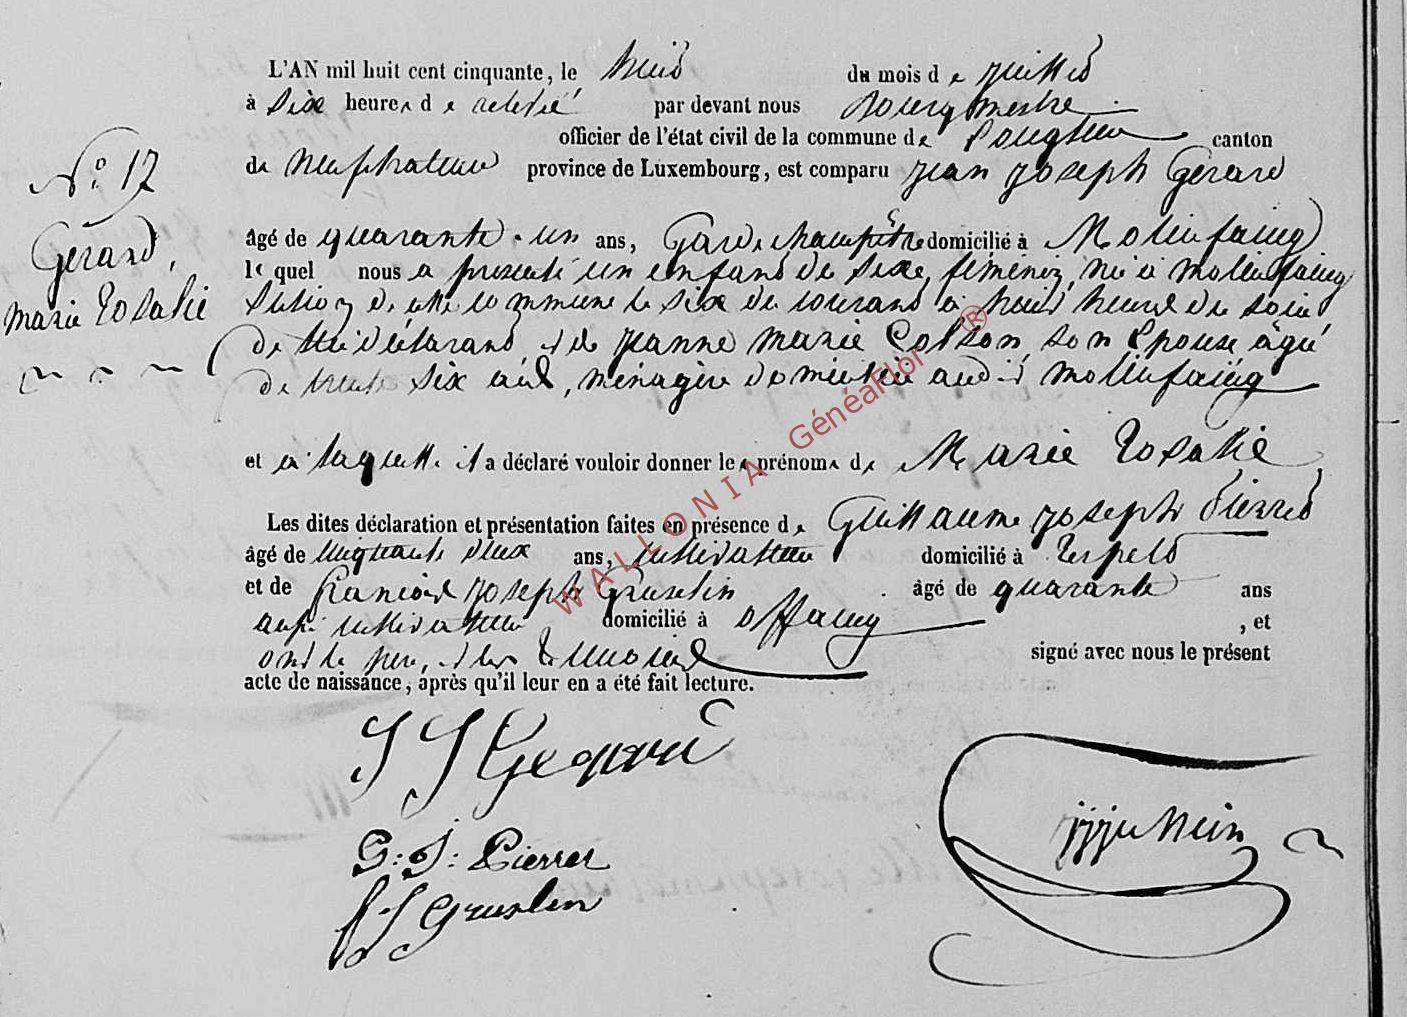 L'AN mil huit cent cinquante, le huit du mois de juillet
à six heures de relevé par devant nous Bourgmestre
officier de l'état civil de la commune de Longlier canton
N.° 17
de Neufchateau province de Luxembourg, est comparu Jean Joseph Gérard
Gerard,
marie Rosalie
âgé de quarante-un ans, Garde champêtre domicilié à Molinfaing
le quel nous a presenté un enfant de sexe féminin, né à molinfaing
Section de cette commune le six du courant à huit heures du soir,
de lui déclarant, et de Jeanne marie Colson, son Epouse âgée
de trente six ans, ménagère domiciliée audit molinfaing
et à laquelle il a déclaré vouloir donner les prénoms de Marie Rosalie
Les dites déclaration et présentation faites en présence de Guillaume Joseph Pierret
âgé de cinquante deux ans, cultivateur domicilié à
et de François Joseph Gruslin âgé de quarante ans
aussi cultivateur domicilié à offaing , et
ont le père, et les témoins signé avec nous le présent
acte de naissance, après qu'il leur en a été fait lecture.
J J Gerard
G: J: Pierret
f J Gruslin
WALLONIA GénéaFlor ®